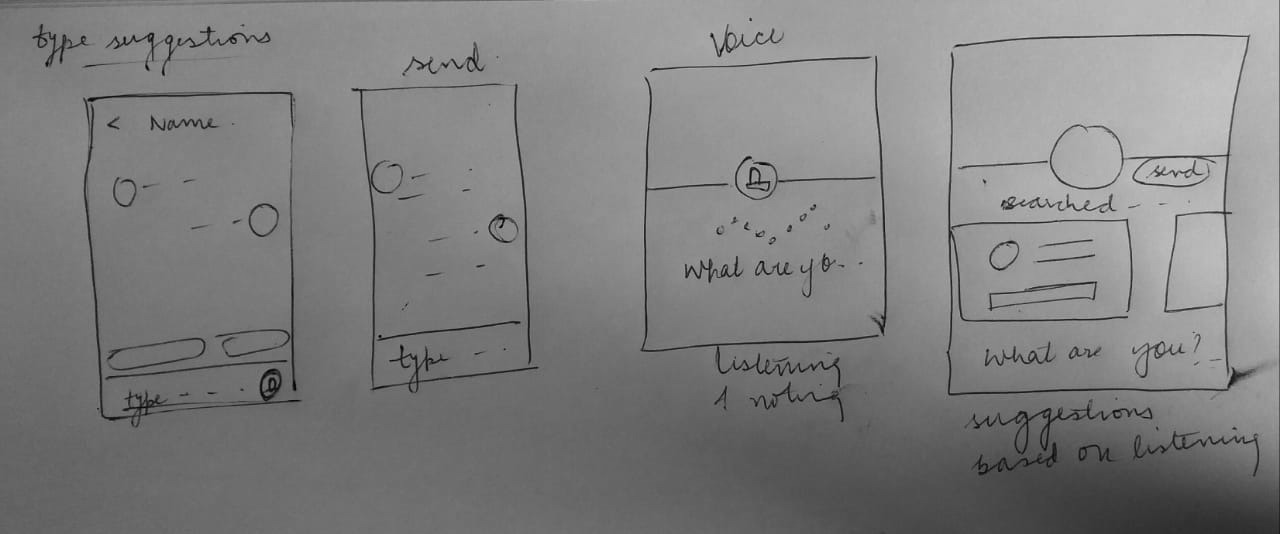 type suggestions
< Name
type
send
type
Voice
What are yo...
listening
& noting
send
searched
What are you?
suggestions
based on listening